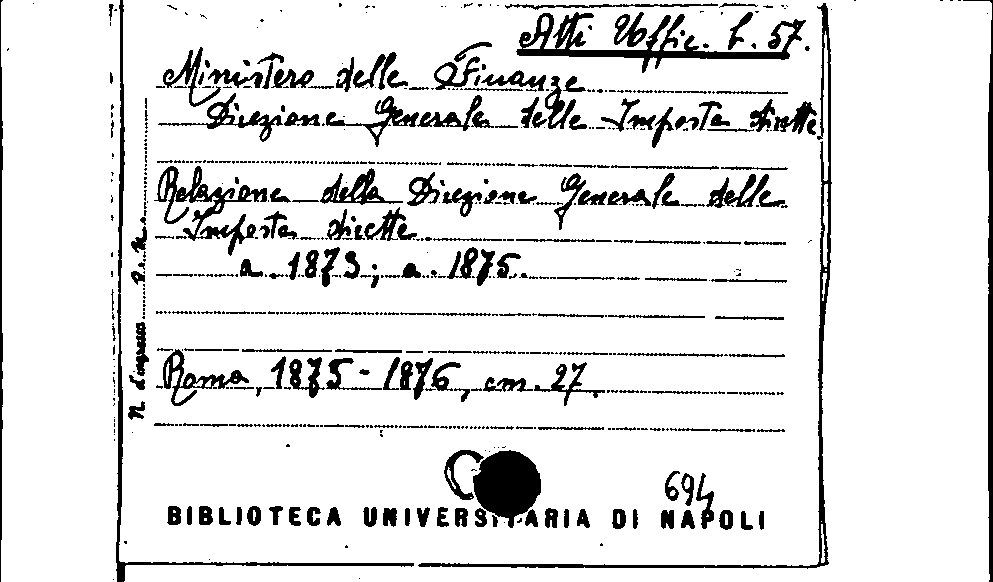 Atti Uffic. L. 57.
Ministero delle Finanze.
Direzione Generale delle Imposte dirette
Relazione della Direzione Generale delle
Imposte dirette.
a. 1873; a. 1875.
Roma, 1875-1876, cm. 27.
N. d'ingresso
694
BIBLIOTECA UNIVERSITARIA DI NAPOLI